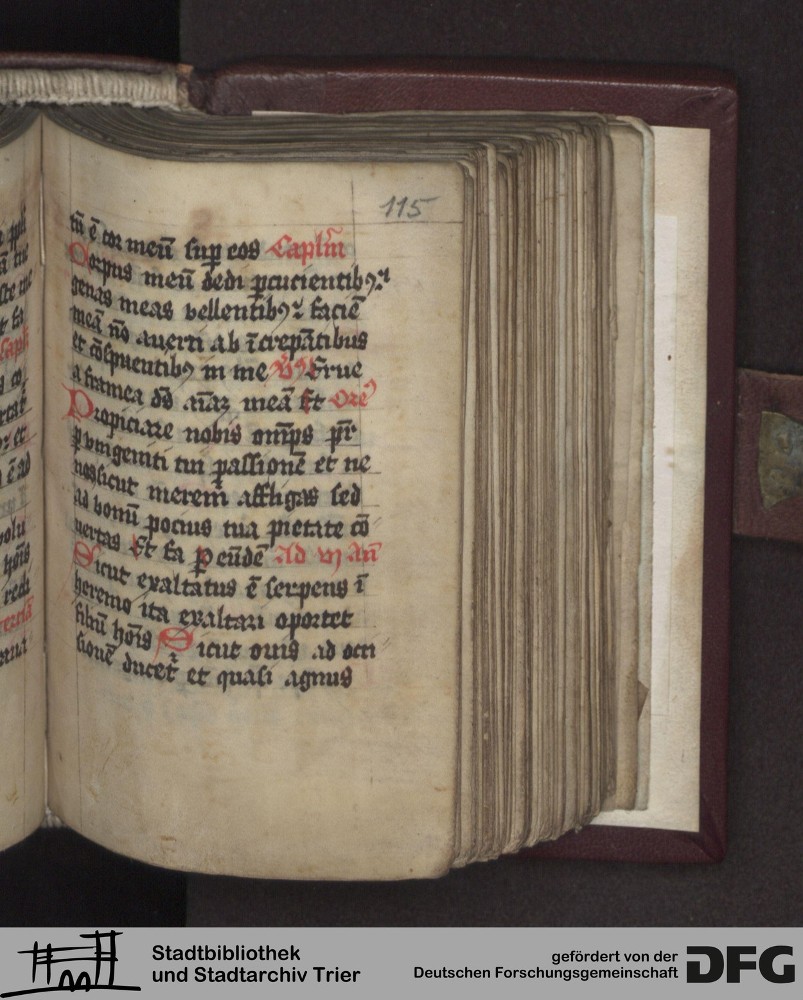 115
tñ ē cor meū sup eos Caplm̄
Corpus meū dedi pcucientibꝰ ⁊
genas meas vellentibꝰ ⁊ faciē
meā nō auerti ab īcrepātibus
et cōspuentibꝰ in me Vs Erue
a framea dß aīaꝫ meā Et Ore
Propiciare nobis omps pr̄
p vnigeniti tui passionē et ne
nos sicut merem̄ affligas sed
ad bonū pocius tua pietate cō
uertas Et fa p eūdē Ad vj an̄
Sicut exaltatus ē serpens ī
heremo ita exaltari oportet
filiū hoīs Sicut ouis ad occi
sionē ducet͛ et quasi agnus
Stadtbibliothek
und Stadtarchiv Trier
gefördert von der
Deutschen Forschungsgemeinschaft
DFG